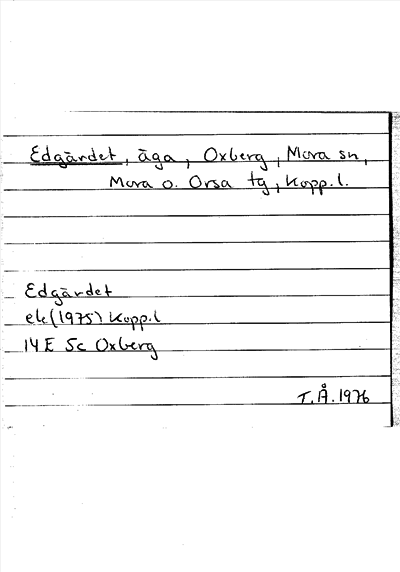 Edgärdet, äga, Oxberg, Mora sn,
Mora o. Orsa tg, Kopp.l.
Edgärdet
ek (1975) Kopp.l
14E 5c Oxberg
T.Å. 1976